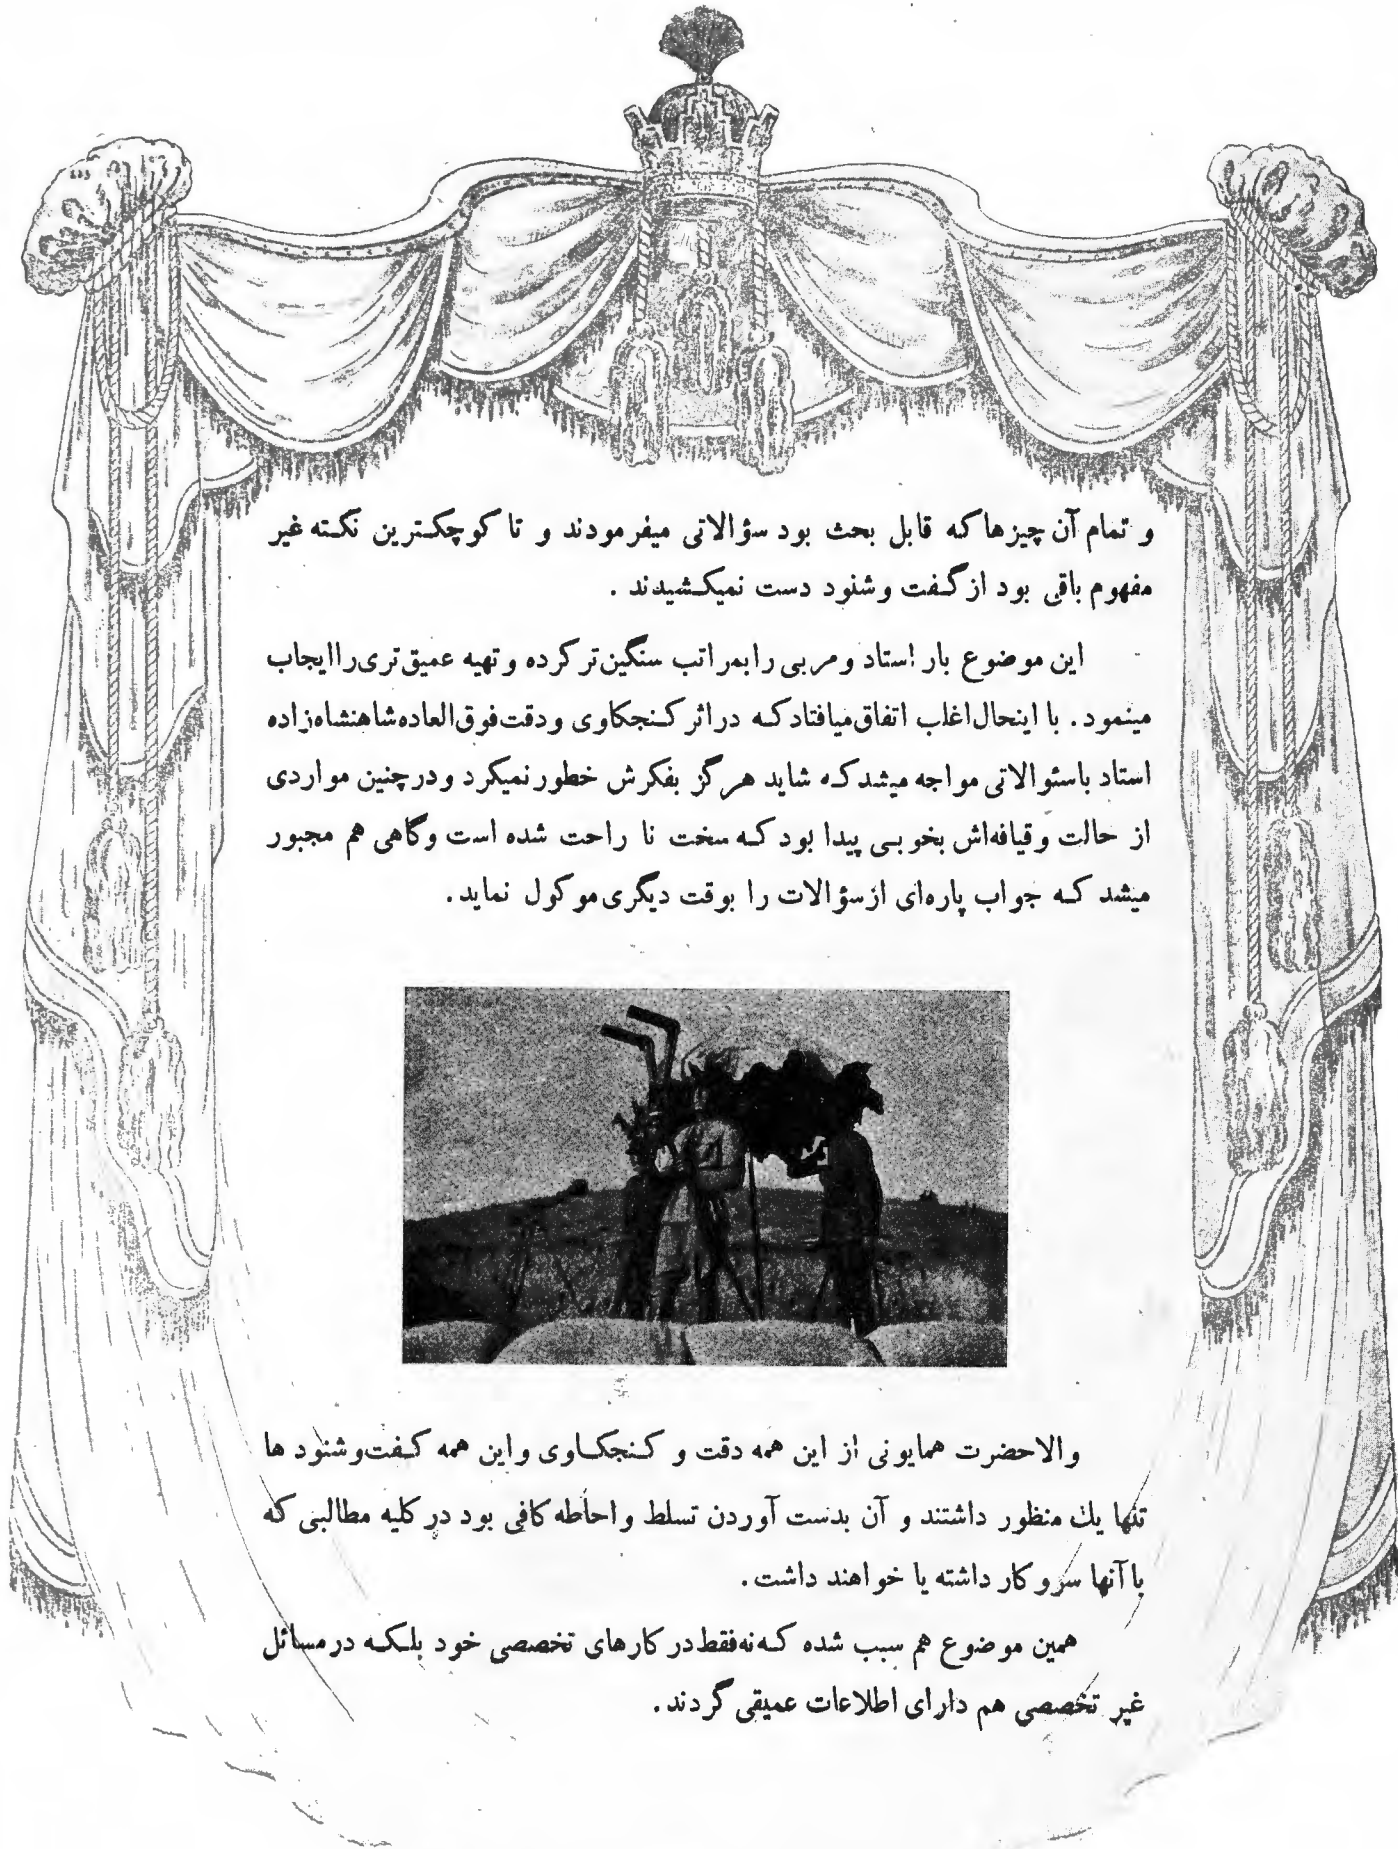 و تمام آن چیزها که قابل بحث بود سؤالاتی میفرمودند و تا کوچکترین نکته غیر
مفهوم باقی بود از گفت وشنود دست نمیکشیدند .
این موضوع بار استاد و مربی را بمراتب سنگین‌تر کرده و تهیه عمیق‌تری را ایجاب
مینمود. با اینحال اغلب اتفاق میافتاد که در اثر کنجکاوی و دقت فوق‌العاده شاهنشاه‌زاده
استاد با سئوالاتی مواجه میشد که شاید هرگز بفکرش خطور نمیکرد و در چنین مواردی
از حالت و قیافه‌اش بخوبی پیدا بود که سخت نا راحت شده است و گاهی هم مجبور
میشد که جواب پاره‌ای از سؤالات را بوقت دیگری موکول نماید.
والاحضرت همایونی از این همه دقت و کنجکاوی و این همه گفت‌وشنود ها
تنها یك منظور داشتند و آن بدست آوردن تسلط و احاطه کافی بود در کلیه مطالبی که
با آنها سر و کار داشته یا خواهند داشت.
همین موضوع هم سبب شده که نه‌فقط در کارهای تخصصی خود بلکه در مسائل
غیر تخصصی هم دارای اطلاعات عمیقی گردند.